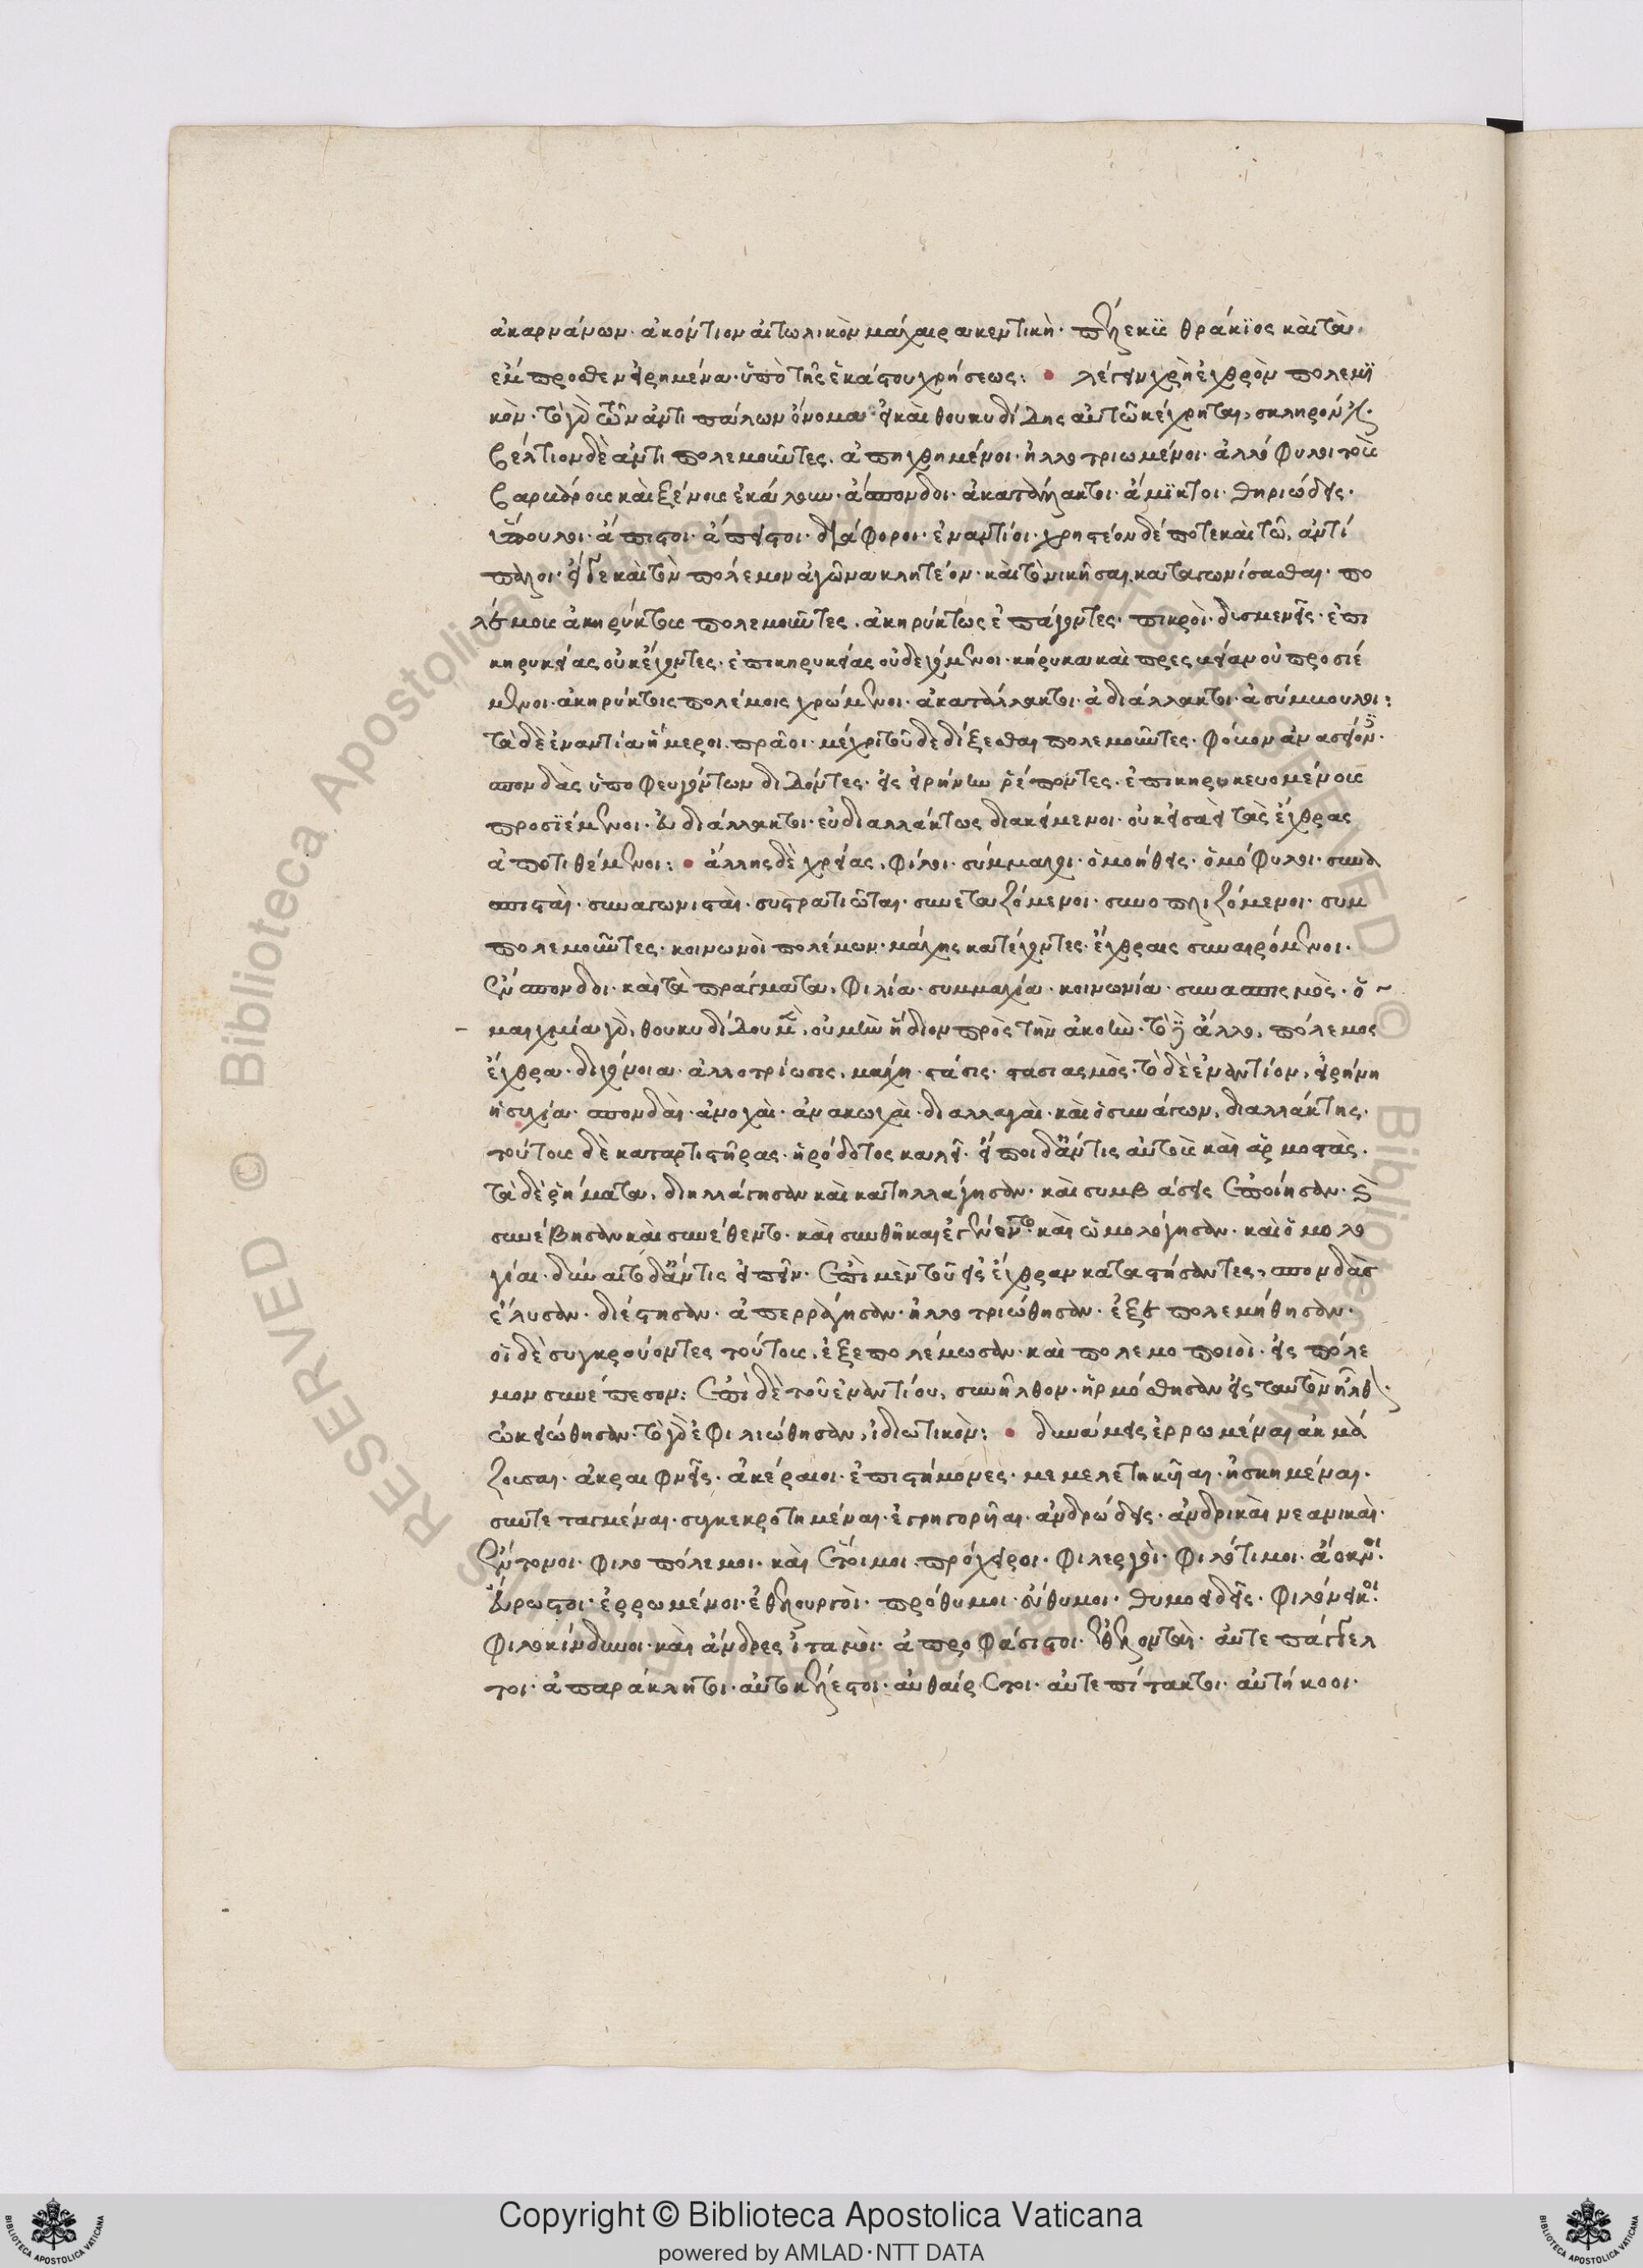 ἀκαρνάνων· ἀκόντιον αἰτωλικὸν μάχαιρα κεντικὴ· πέλεκυς θράκϊος καὶ τὰ
ἔμπροσθεν εἰρημένα· ὑπὸ τῆς ἑκάστου χρήσεως: • λέγειν χρὴ ἐχθρὸν πολεμϊ
κὸν· τὸ γὰρ τῶν ἀντιπάλων ὄνομα· εἰ καὶ θουκυδίδης αὐτῶ κέχρηται, σκληρόν
βέλτιον δὲ ἀντιπολεμοῦντες. ἀπηχθημένοι· ἠλλοτριωμένοι· ἀλλόφυλοι τοὺς
βαρβάρους καὶ ξένους ἐκάλουν· ἄσπονδοι· ἀκατάλλακτοι· ἄμϊκτοι· θηριώδεις·
ὕπουλοι· ἄπιστοι· ἄπειστοι· διάφοροι· ἐναντίοι· χρηστέον δέ ποτε καὶ τῶ, ἀντί
παλοι· εἴ γε καὶ τὸν πόλεμον ἀγῶνα κλητέον· καὶ τὸ νικῆσαι καταγωνίσασθαι· πο
λέμους ἀκηρύκτους πολεμοῦντες. ἀκηρύκτως ἐπάγοντες· πικροὶ· δυσμενεῖς· ἐπι
κηρυκείας οὐκ ἔχοντες· ἐπικηρυκείας οὐ δεχόμενοι· κήρυκα καὶ πρεσβείαν οὐ προσιέ
μενοι· ἀκηρύκτοις πολέμοις χρώμενοι· ἀκατάλλακτοι· ἀδιάλλακτοι· ἀσύμβουλοι:
τὰ δὲ ἐναντία, ἥμεροι. πρᾶοι· μέχρι τοῦ δεδίξεσθαι πολεμοῦντες· φόνον
σπονδὰς ὑποφευγόντων διδόντες· εἰς εἰρήνην ῥέποντες. ἐπικηρυκευομένους
προσϊέμενοι· εὐδιάλλακτοι· εὐδιαλλάκτως διακείμενοι· οὐκ εἰσαεὶ τὰς ἔχθρας
ἀποτιθέμενοι: • ἄλλης δὲ χρείας, φίλοι· σύμμαχοι· ὁμοήθεις· ὁμόφυλοι· συνα
σπισταὶ· συναγωνισταὶ· συστρατιῶται· συνεταζόμενοι· συνοπλιζόμενοι· συμ
πολεμοῦντες· κοινωνοὶ πολέμων· μάχης κατέχοντες· ἔχθραις συναιρόμενοι·
ἔνσπονδοι· καὶ τὰ πράγματα, φιλία· συμμαχία· κοινωνία· συνασπισμὸς· ὁ
μαιχμία γὰρ, θουκυδίδου μὲν, οὐ μὴν ἥδιον πρὸς τὴν ἀκοὴν· τὸ δὲ ἄλλο, πόλεμος
ἔχθρα· διχόνοια· ἀλλοτρίωσις, μάχη· στάσις· στασιασμὸς· τὸ δὲ ἐναντίον, εἰρήνη
ἡσυχία· σπονδαὶ· ἀνοχαὶ· ἀνακωχαὶ· διαλλαγαὶ· καὶ ὁ συνάγων, διαλλάκτης·
τούτους δὲ καταρτιστῆρας· ἡρόδοτος καλεῖ· εἴποι δ' ἄν τις αὐτοὺς καὶ ἁρμοστὰς·
τὰ δὲ ῥήματα, διηλλάγησαν καὶ κατηλλάγησαν· καὶ συμβάσεις ἐποίησαν·
συνέβησαν καὶ συνέθεντο· καὶ συνθῆκαι ἐγένοντο· καὶ ὡμολόγησαν· καὶ ὁμολο
γίαι· δύναιτο δ' ἄν τις εἰπεῖν· ἐπὶ μὲν τοῦ εἰς ἔχθραν καταστήσαντες, σπονδὰς
ἔλυσαν· διέστησαν· ἀπερράγησαν· ἠλλοτριώθησαν· ἐξεπολεμήθησαν·
οἱ δὲ συγκρούοντες τούτους, ἐξεπολέμωσαν· καὶ πολεμοποιοὶ· εἰς πόλε
μον συνέπεσον: ἐπὶ δὲ τοῦ ἐναντίου, συνῆλθον· ἡρμόσθησαν εἰς ταυτὸν ἦλθον·
ὠκειώθησαν· τὸ γὰρ ἐφιλιώθησαν, ἰδιωτικὸν: • δυνάμεις ἐρρωμέναι ἀκμά
ζουσαι· ἀκραιφνεῖς· ἀκέραιοι· ἐπιστήμονες· μεμελετηκυῖαι· ἠσκημέναι·
συντεταγμέναι· συγκεκροτημέναι· ἐγρηγορυῖαι· ἀνδρώδεις· ἀνδρικαὶ νεανικαὶ·
ἔντονοι· φιλοπόλεμοι· καὶ ἕτοιμοι· πρόχειροι· φιλεργοὶ· φιλότιμοι· ἄοκνοι·
εὔρωστοι· ἐρρωμένοι· ἐθελουργοὶ· πρόθυμοι· εὔθυμοι· θυμοειδεῖς· φιλόνεικοι·
φιλοκίνδυνοι· καὶ ἄνδρες ἰταμοὶ· ἀπροφάσιστοι· ἐθελονταὶ· αὐτεπάγγελ
τοι· ἀπαράκλητοι· αὐτοκέλευστοι· αὐθαίρετοι· αὐτεπίτακτοι· αὐτήκοοι·
Copyright © Biblioteca Apostolica Vaticana
powered by AMLAD·NTT DATA